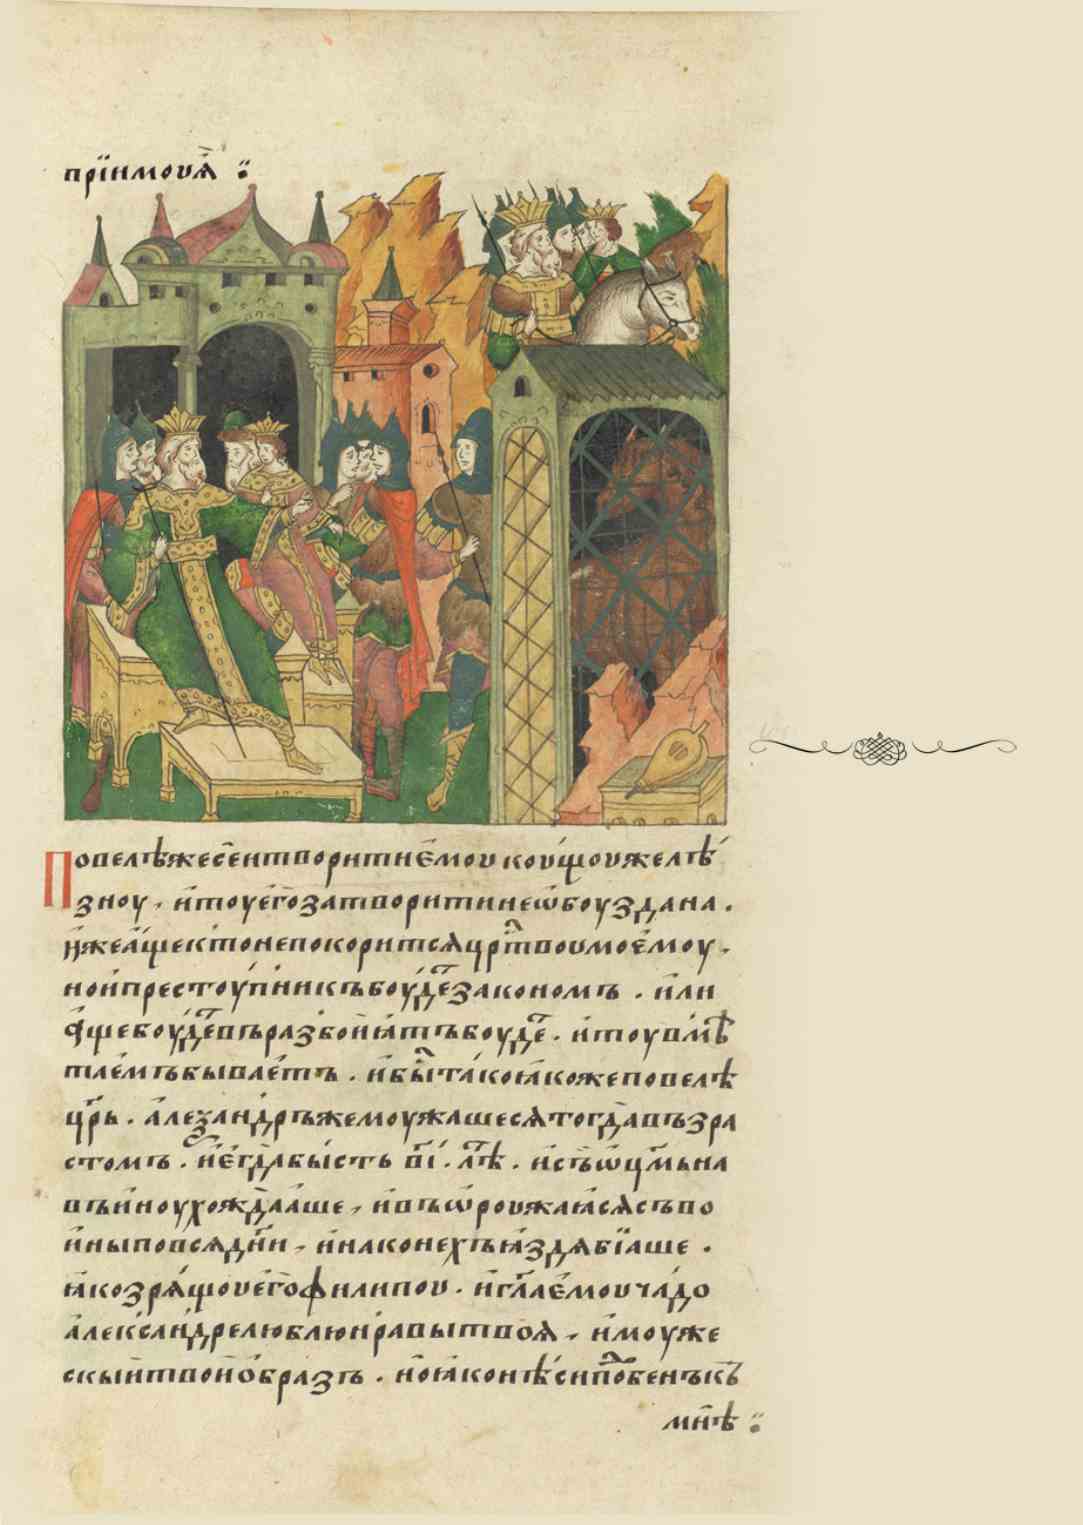 прїимоуѧ҆ ⁘
Повелѣжесенꙋтворитиє҆моу коущоужелѣ
зноу, и҆тоуегозатворитинеѡ҆боуздана.
и҆жеа҆щектонепокоритсѧцр͒твоумоє҆моу.
ноипрестоу́пникъбоу́дезакономъ. и҆ли
а҆щебоу́девъразбоиꙗ҆тъбоуде. и҆тоувмѣ
таемъбываетъ. и҆бы́такоꙗ҆кожеповелѣ
цр҃ь. алеѯандръжемоужашесѧтогдавъзра
стомъ. и҆є҆гдабы́сть в҃і. лѣ. и҆съѡ҆ц҃мьна
въи҆ноухождааше, и҆въѡ҆роужаꙗ҆сѧсъво
и҆ныповсѧдн҃и, и҆наконехъꙗ҆здѧбїаше.
ꙗ҆козрѧ́щоуегофилипоу. и҆гл҃аємоучѧдо
алеѯандрелюблюнравытвоѧ, и҆моуже
скыи҆твои҆о҆бразъ. ноꙗ҆конѣсипобенъкъ
мн҃ѣ ⁘